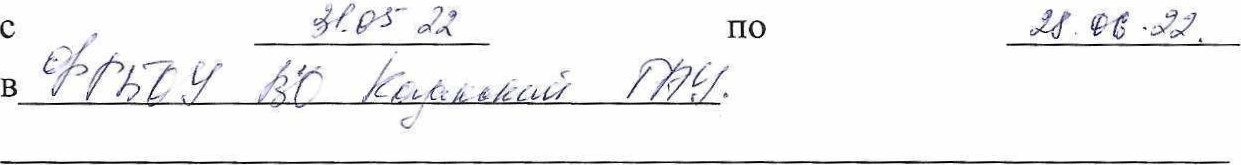 с 31.05 22 по 28.06.22.
в ФГБОУ ВО Казанский ГАУ.